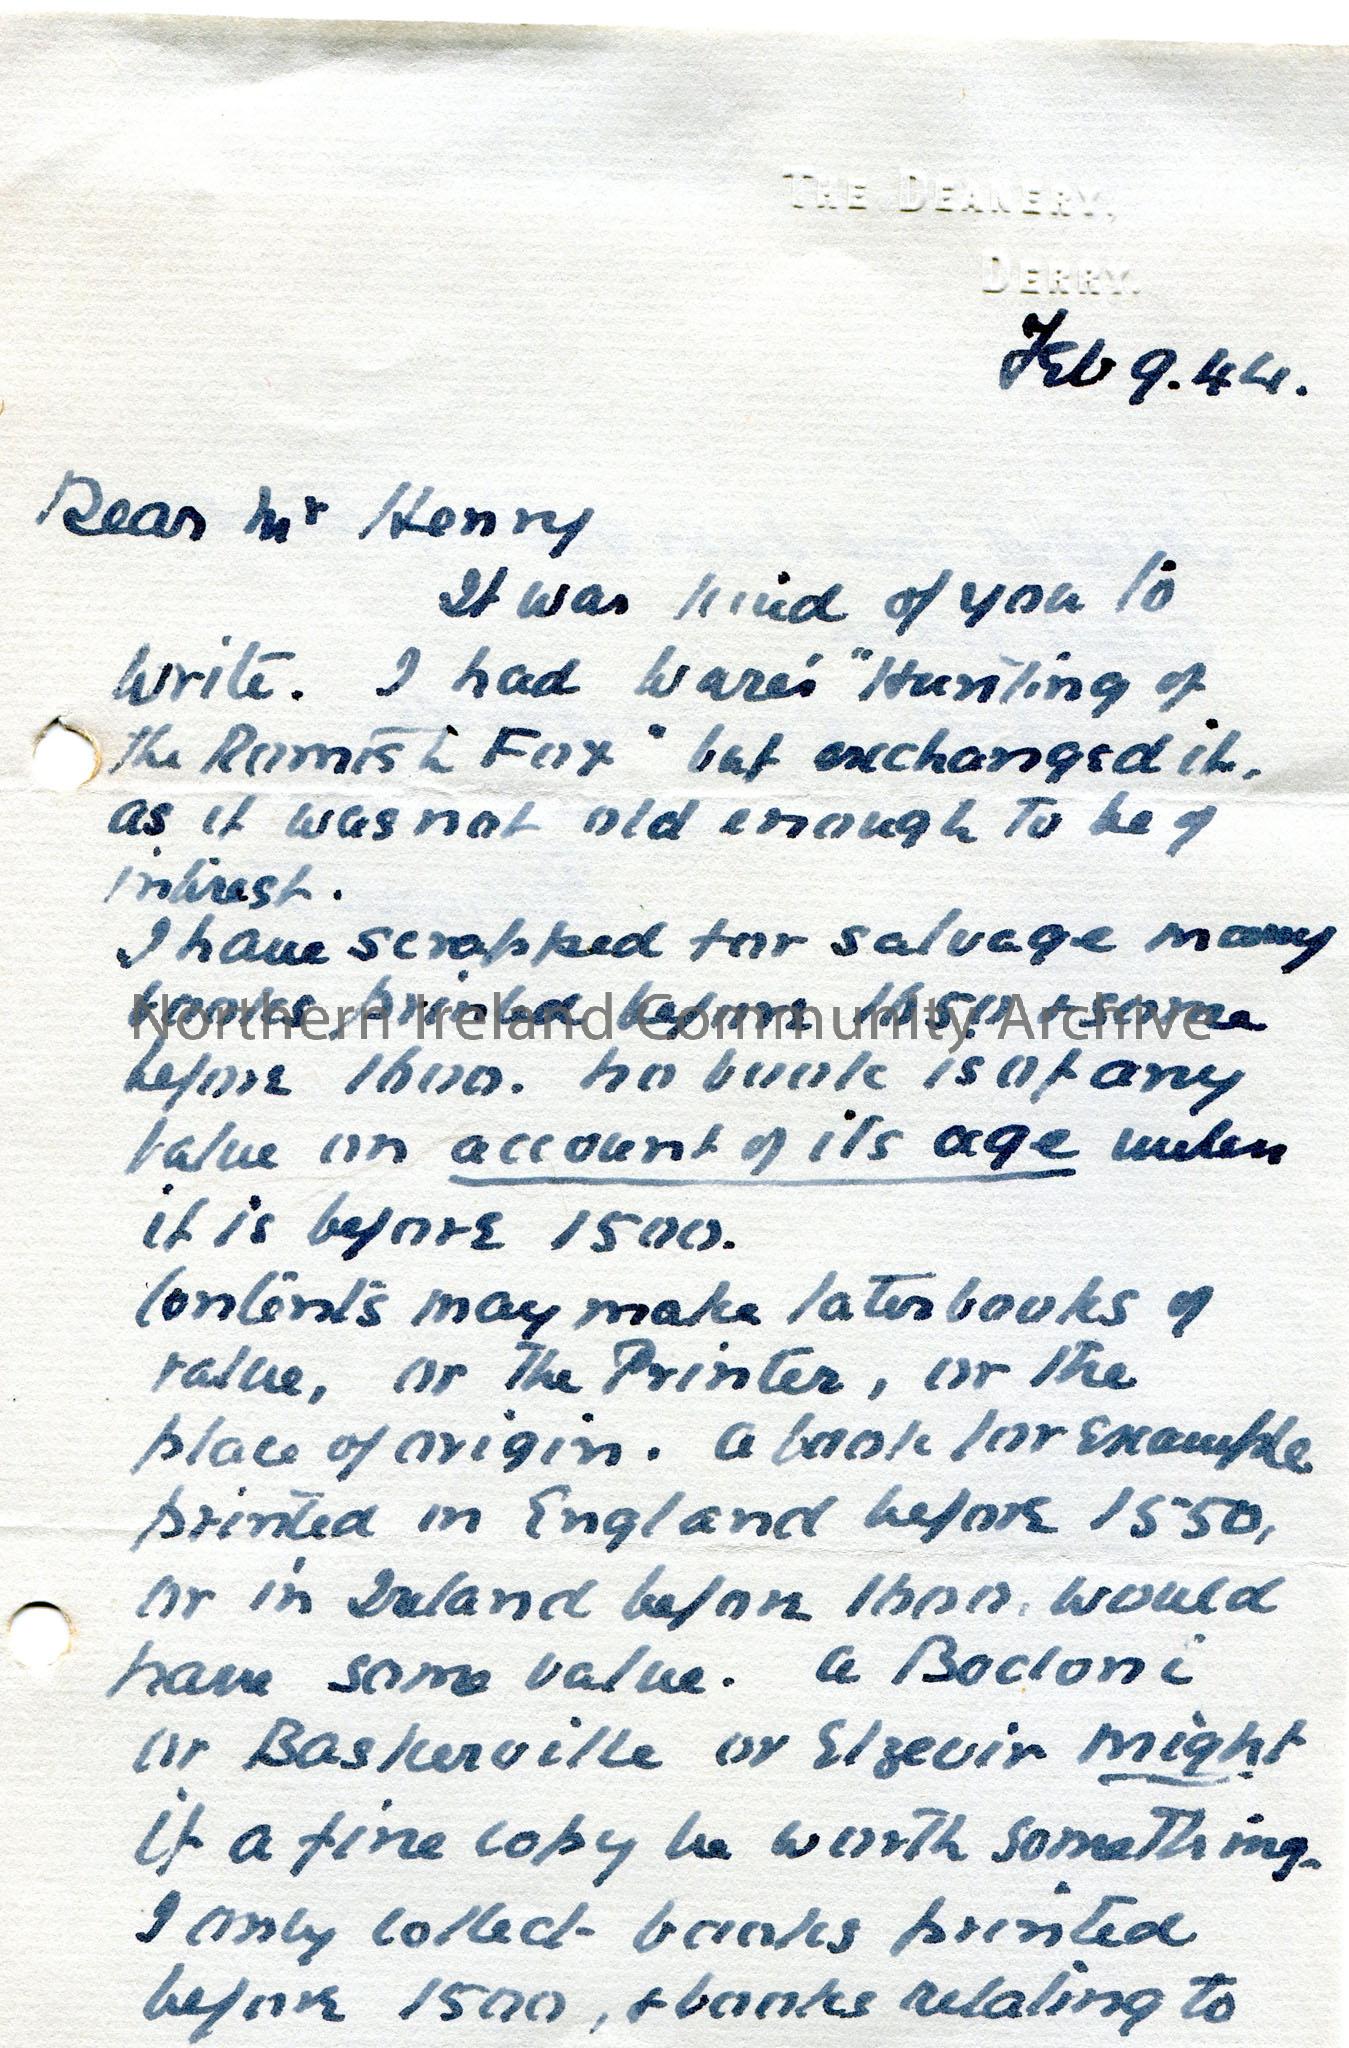 THE DEANERY,
DERRY.
Feb 9. 44.
Dear Mr Henry
It was kind of you to
write. I had Ware's "Hunting of
the Romish Fox" but exchanged it,
as it was not old enough to be of
interest.
I have scrapped for salvage many
books printed before 1650 & some
Northern Ireland Community Archive
before 1600. No book is of any
value on account of its age unless
it is before 1500.
Contents may make later books of
value, or the Printer, or the
place of origin. A book for example
printed in England before 1550,
or in Ireland before 1600, would
have some value. A Bodoni
or Baskerville or Elzevir might
if a fine copy be worth something.
I only collect books printed
before 1500, & books relating to